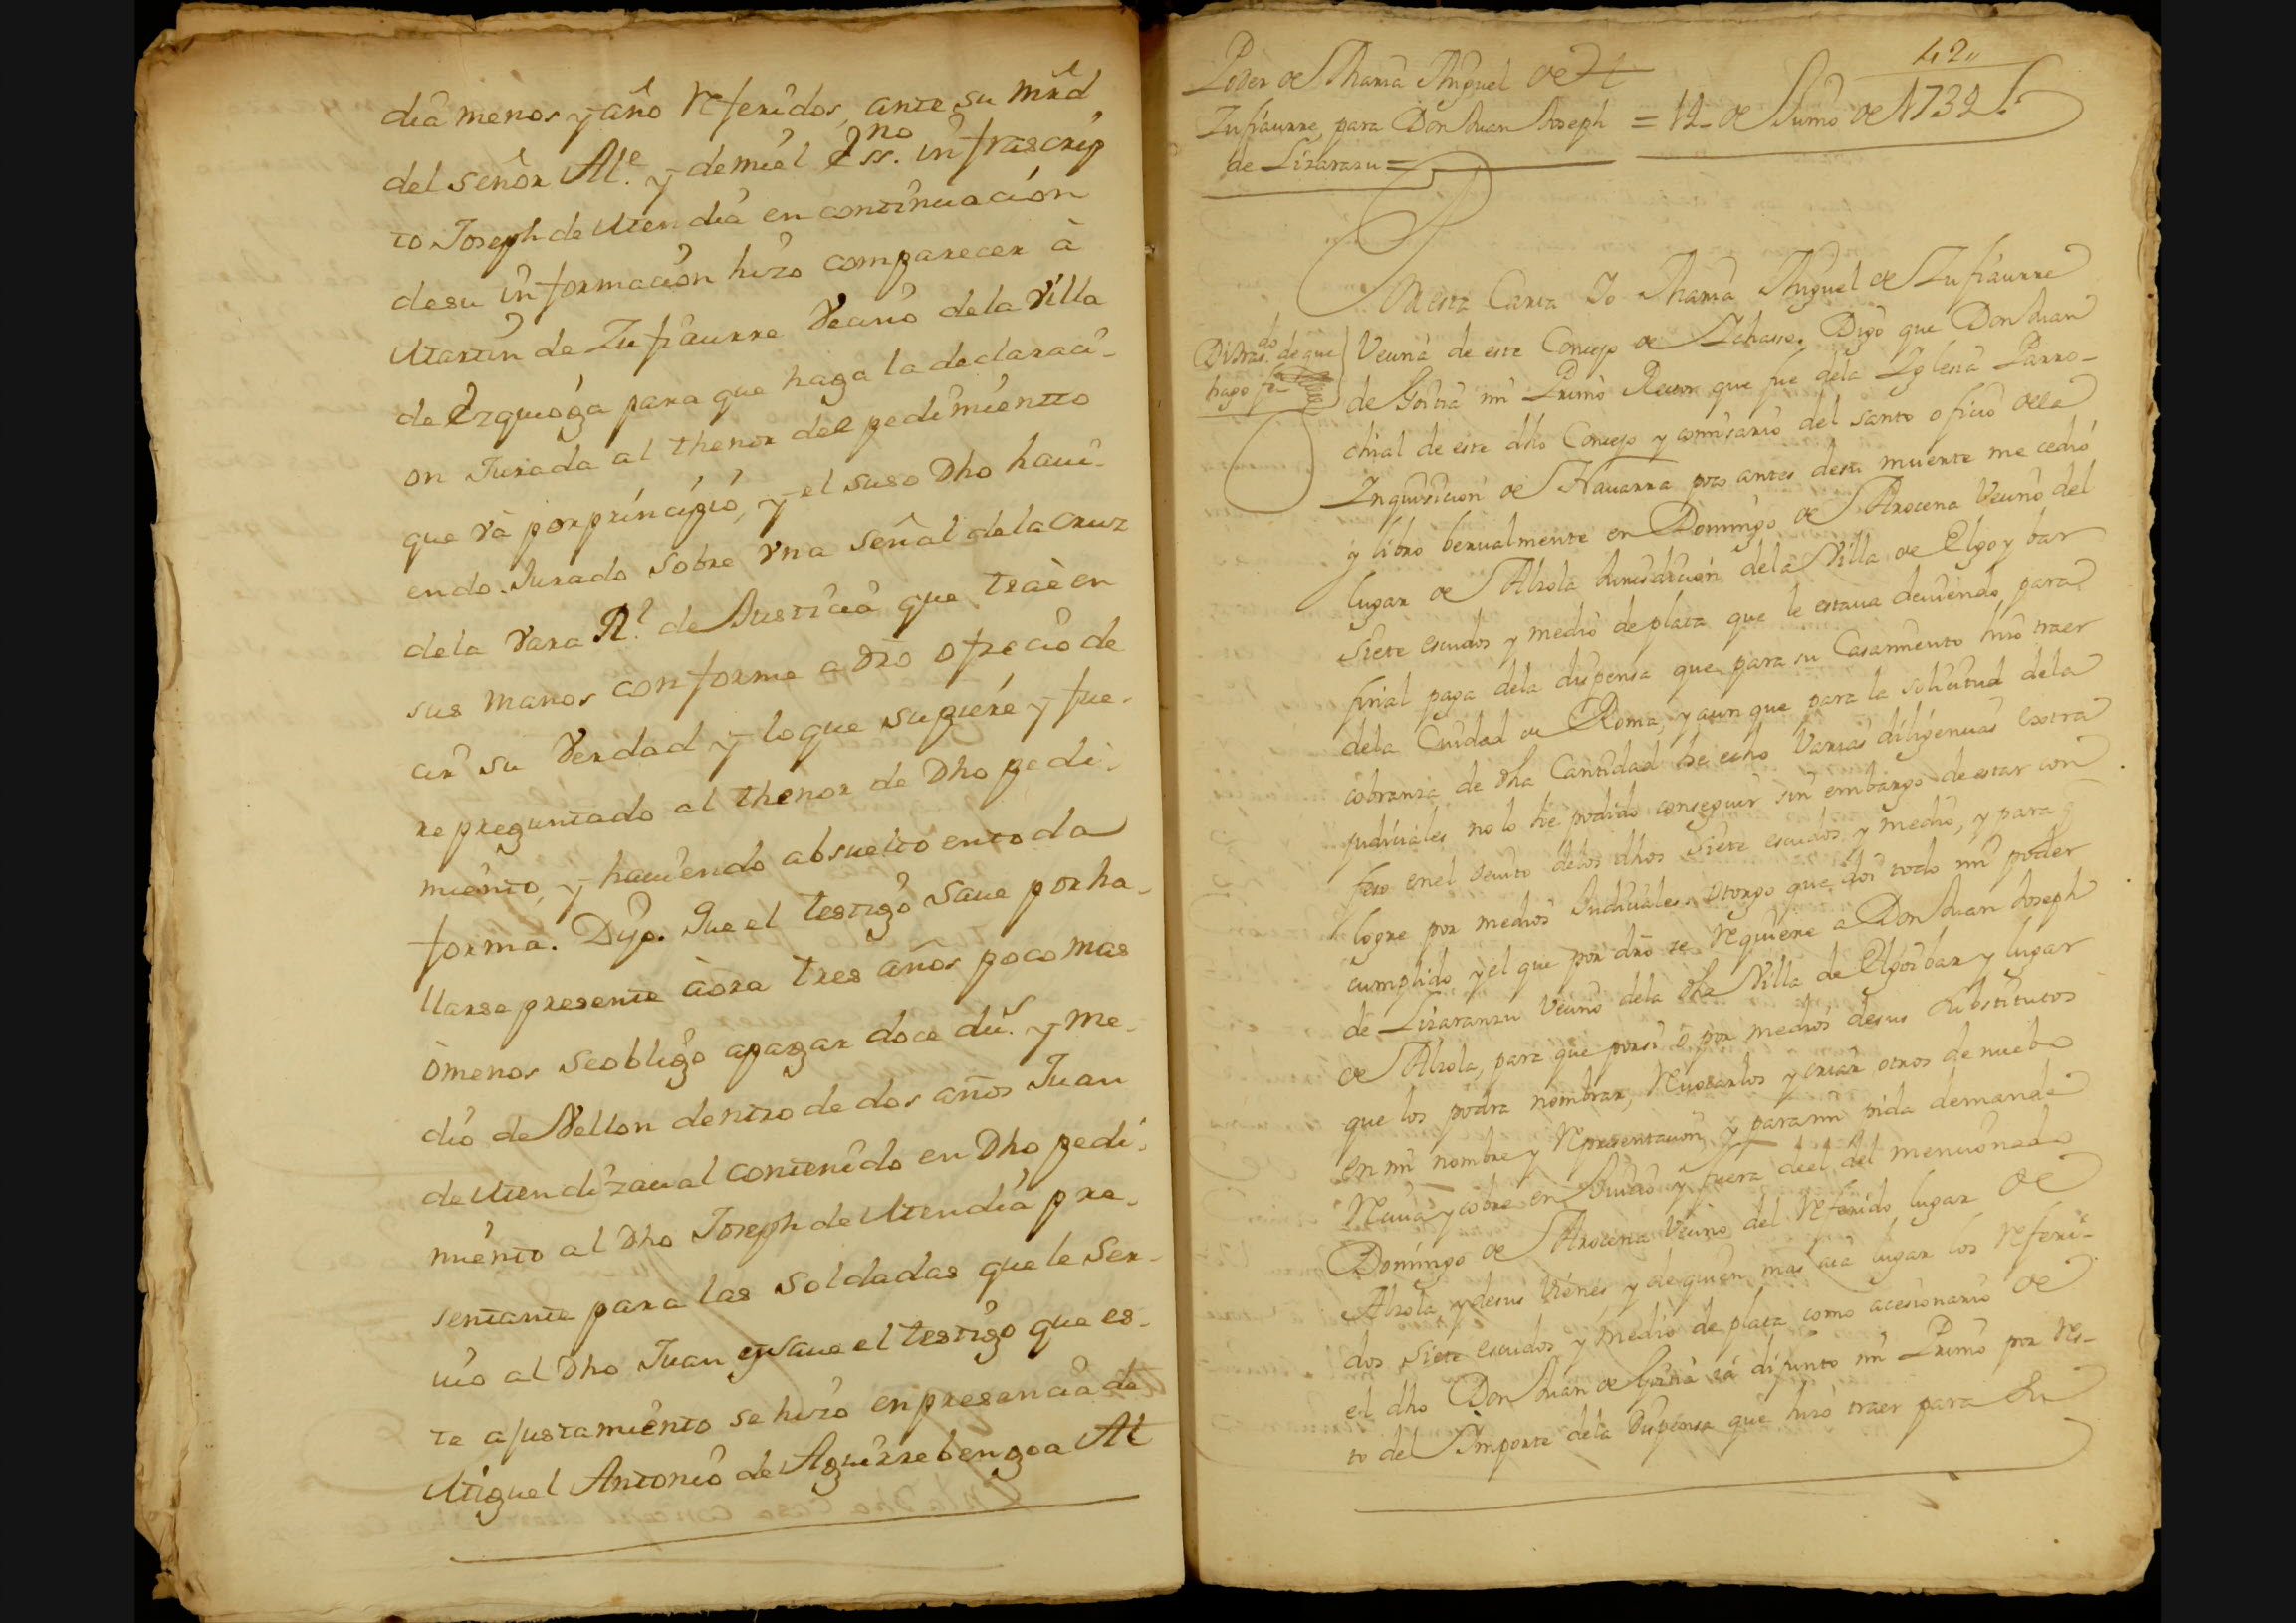 dia menos y año Referidos, ante su mrd
del señor Ale. y de mi el Essno. infrascrip
to Joseph de Mendia en continuacion
de su informacion hizo comparecer à
Martin de Zufiaurre Vecino de la Villa
de Ezquioga para que haga la declaraci-
on Jurada al thenor del pedimientto
que và por principio, y el suso Dho havi-
endo Jurado sobre Vna señal de la Cruz
de la Vara Rl. de Justicia que traè en
sus manos conforme a Dro ofrecio de
cir su Verdad y lo que supiére y fue-
re preguntado al thenor de Dho pedi-
miento, y haviendo absuelto en toda
forma. Dijo. Que el testigo save por ha-
llarse presente àora tres años poco mas
ò menos se obligo apagar doce dus. y me-
dio de Vellon dentro de dos años Juan
de Mendizaual contenido en Dho pedi-
miento al Dho Joseph de Mendia pre-
sentante para las soldadas que le ser-
uio al Dho Juan y save el testigo que es-
te ajustamiento se hizo en presencia de
Miguel Antonio de Aguirrebengoa Al
42
Poder de Maria Miguel de
Zufiaurre, para Don Juan Joseph = 12 de Junio de 1732
de Lizararu =
En esta Carta Yo Maria Miguel de Zufiaurre
Vecina de este Concejo de Ichasso. Digo que Don Juan
Di trasdo. de que
hago fe
de Goitia mi Primo Retor que fue de la Iglesia Parro-
chial de este dho Concejo y comisario del santo oficio de la
Inquisicion de Navarra poco antes de su muerte me cedió
y libro berualmente en Domingo de Arocena Vecino del
lugar de Alzola Jurisdicion de la Villa de Elgoybar
Siete escudos y medio de plata que le estaua deuiendo para
final paga de la dispensa que para su Casamiento hizo traer
de la Ciudad de Roma, y aunque para la solicitud de la
cobranza de dha Cantidad he echo Varias diligencias extra
judiciales no lo he podido conseguir sin embargo de estar con
feso en el deuito de los dhos siete escudos y medio, y para q
logre por medios Judiciales. Otorgo que doi todo mi poder
cumplido y el que por dro se Requiere a Don Juan Joseph
de Lizaranzu Vecino de la dha Villa de Elgoibar y lugar
de Alzola, para que por si ò por medios de sus substitutos
que los podra nombrar, Reuocarlos y criar otros de nuebo
en mi nombre y Representacion y para mi pida demande
Reciua y cobre en Juicio y fuera de el del mencionado
Domingo de Arocena Vecino del Referido lugar de
Alzola y de sus bienes y de quien mas aia lugar los Referi-
dos siete escudos y medio de plata como acesionario de
el dho Don Juan de Goitia ya difunto mi Primo por Res-
to del Importe de la Dispensa que hizo traer para su